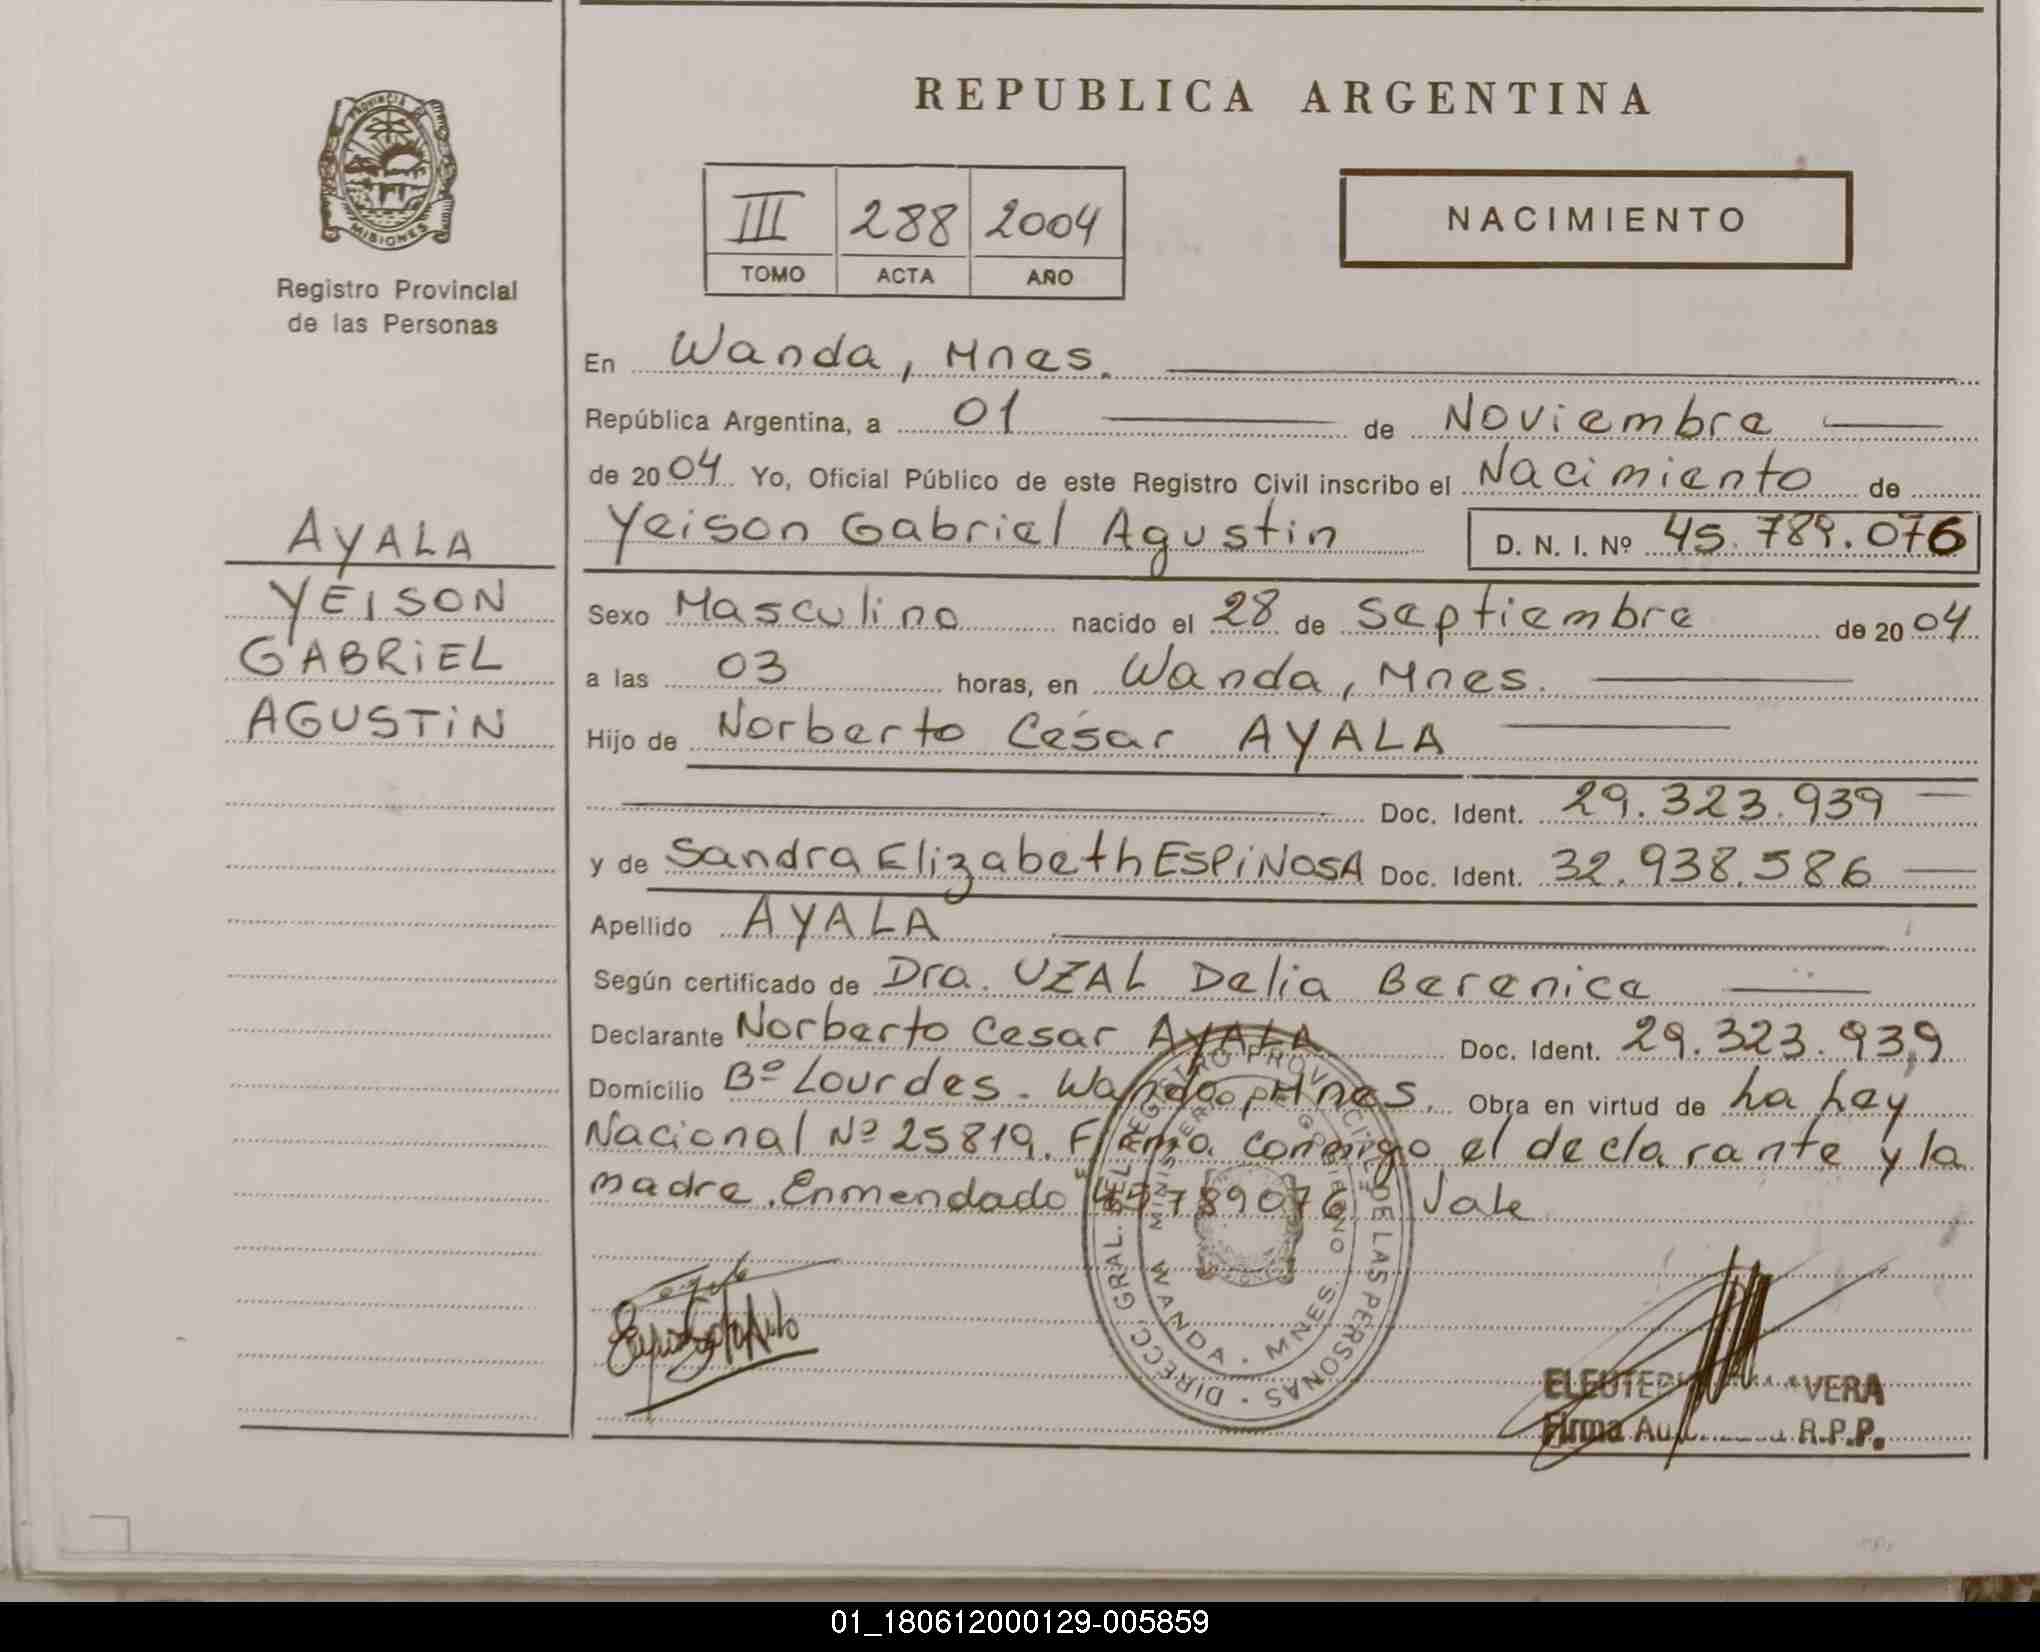 PROVINCIA
MISIONES
Registro Provincial
de las Personas
AYALA
YEISON
GABRIEL
AGUSTIN
REPUBLICA ARGENTINA
III 288 2004
TOMO ACTA AÑO
NACIMIENTO
En Wanda, Mnes.
República Argentina, a 01 de Noviembre
de 2004 Yo, Oficial Público de este Registro Civil inscribo el Nacimiento de
Yeison Gabriel Agustin D. N. I. Nº 45.789.076
Sexo Masculino nacido el 28 de Septiembre de 2004
a las 03 horas, en Wanda, Mnes.
Hijo de Norberto Cesar AYALA
Doc. Ident. 29.323.939
y de Sandra Elizabeth ESPINOSA Doc. Ident. 32.938.586
Apellido AYALA
Según certificado de Dra. UZAL Delia Berenice
Declarante Norberto Cesar AYALA Doc. Ident. 29.323.939
Domicilio Bº Lourdes. Wanda, Mnes. Obra en virtud de La Ley
Nacional Nº 25819. Firma conmigo el declarante y la
madre. Enmendado "45789076" Vale
DIRECC. GRAL. DEL REGISTRO PROVINCIAL DE LAS PERSONAS
MINISTERIO DE GOBIERNO
WANDA - MNES.
VERA
Firma R.P.P.
01_180612000129-005859